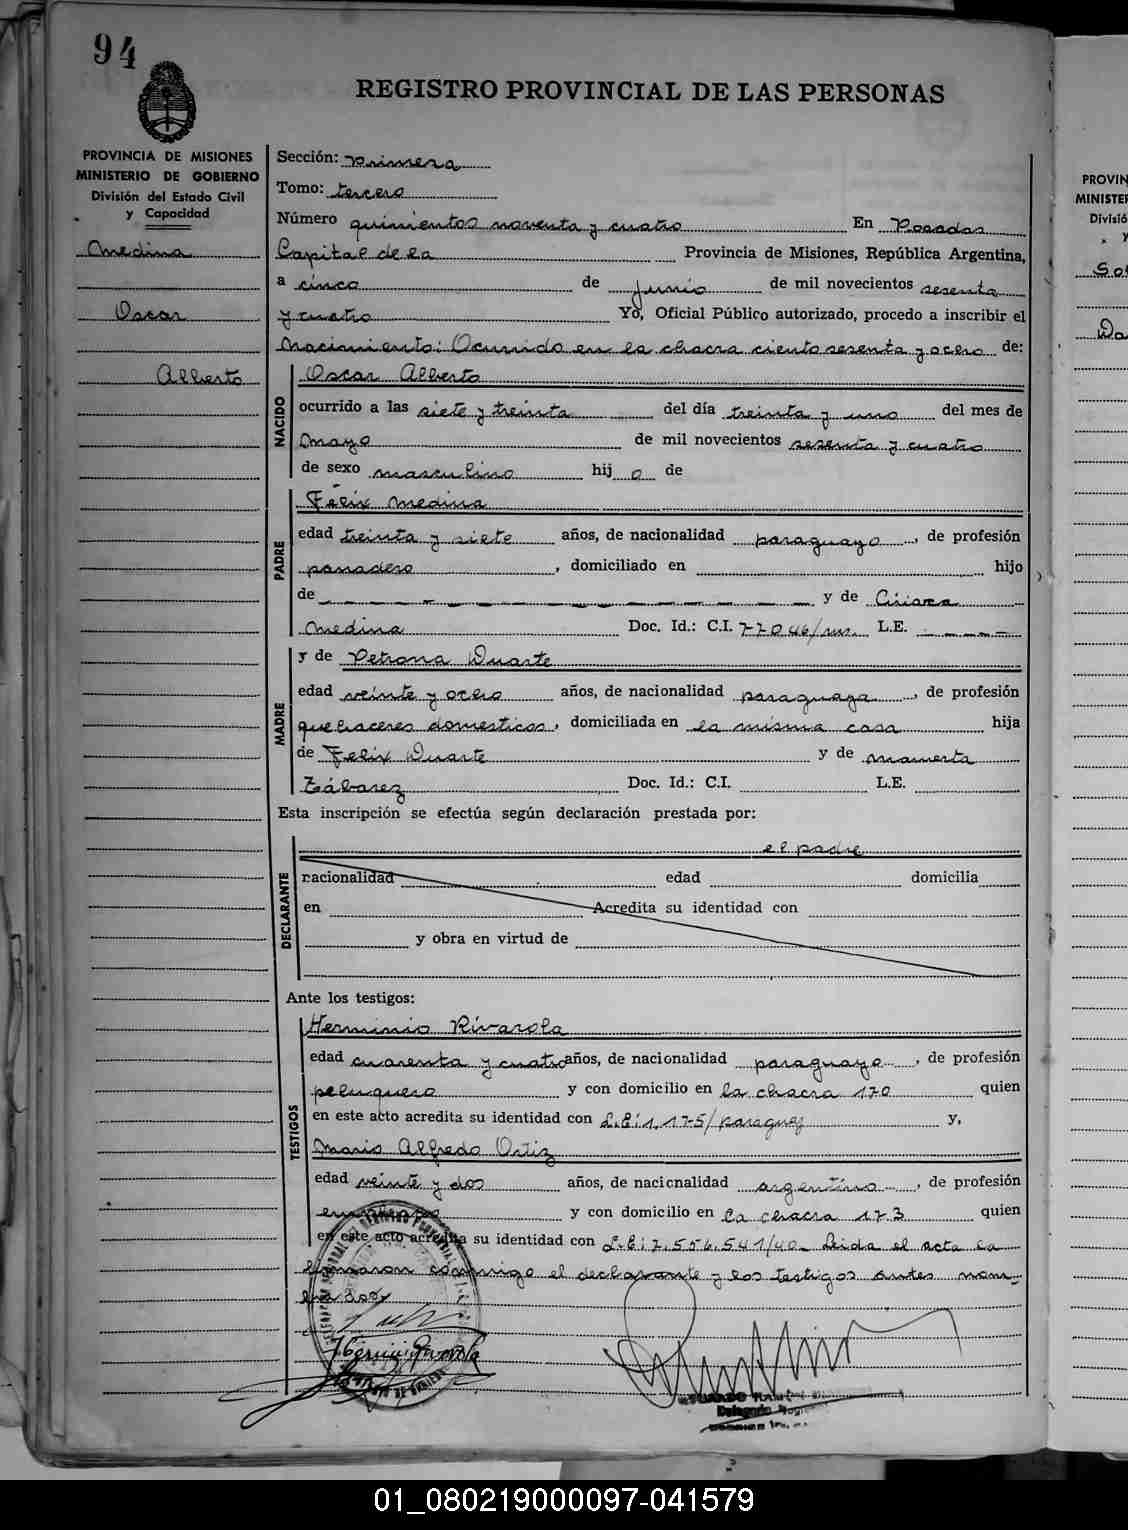 94
REGISTRO PROVINCIAL DE LAS PERSONAS
PROVINCIA DE MISIONES
MINISTERIO DE GOBIERNO
División del Estado Civil
y Capacidad
Medina
Oscar
Alberto
Sección: primera
Tomo: tercero
Número quinientos noventa y cuatro En Posadas
Capital de la Provincia de Misiones, República Argentina,
a cinco de junio de mil novecientos sesenta
y cuatro Yo, Oficial Público autorizado, procedo a inscribir el
Nacimiento: Ocurrido en la chacra ciento sesenta y ocho de:
NACIDO
Oscar Alberto
ocurrido a las siete y treinta del día treinta y uno del mes de
mayo de mil novecientos sesenta y cuatro
de sexo masculino hij o de
PADRE
Félix Medina
edad treinta y siete años, de nacionalidad paraguayo, de profesión
panadero, domiciliado en hijo
de y de Ciriaca
Medina Doc. Id.: C.I. 77046/ L.E.
MADRE
y de Petrona Duarte
edad veinte y ocho años, de nacionalidad paraguaya, de profesión
quehaceres domesticos, domiciliada en la misma casa hija
de Felix Duarte y de Mamerta
Zábarez Doc. Id.: C.I. L.E.
Esta inscripción se efectúa según declaración prestada por:
DECLARANTE
el padre
nacionalidad edad domicilia
en Acredita su identidad con
y obra en virtud de
Ante los testigos:
TESTIGOS
Herminio Rivarola
edad cuarenta y cuatro años, de nacionalidad paraguayo, de profesión
peluquero y con domicilio en la chacra 170 quien
en este acto acredita su identidad con L.E: 1.175/paraguay y,
Mario Alfredo Ortiz
edad veinte y dos años, de nacionalidad argentino, de profesión
empleado y con domicilio en la chacra 173 quien
en este acto acredita su identidad con L.E: 7.556.541/40- Leida el acta la
firmaron conmigo el declarante y los testigos antes nom-
brados
PROVIN
MINISTER
Divisió
y
01_080219000097-041579